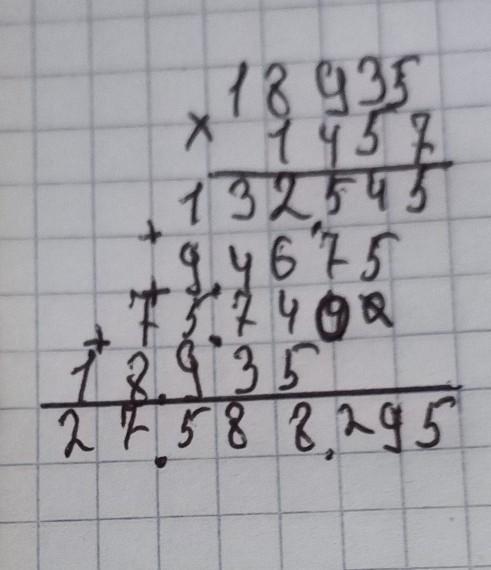 18935
× 1457
132.545
+ 946.75
+ 75.740
+ 18.935
27.588.295